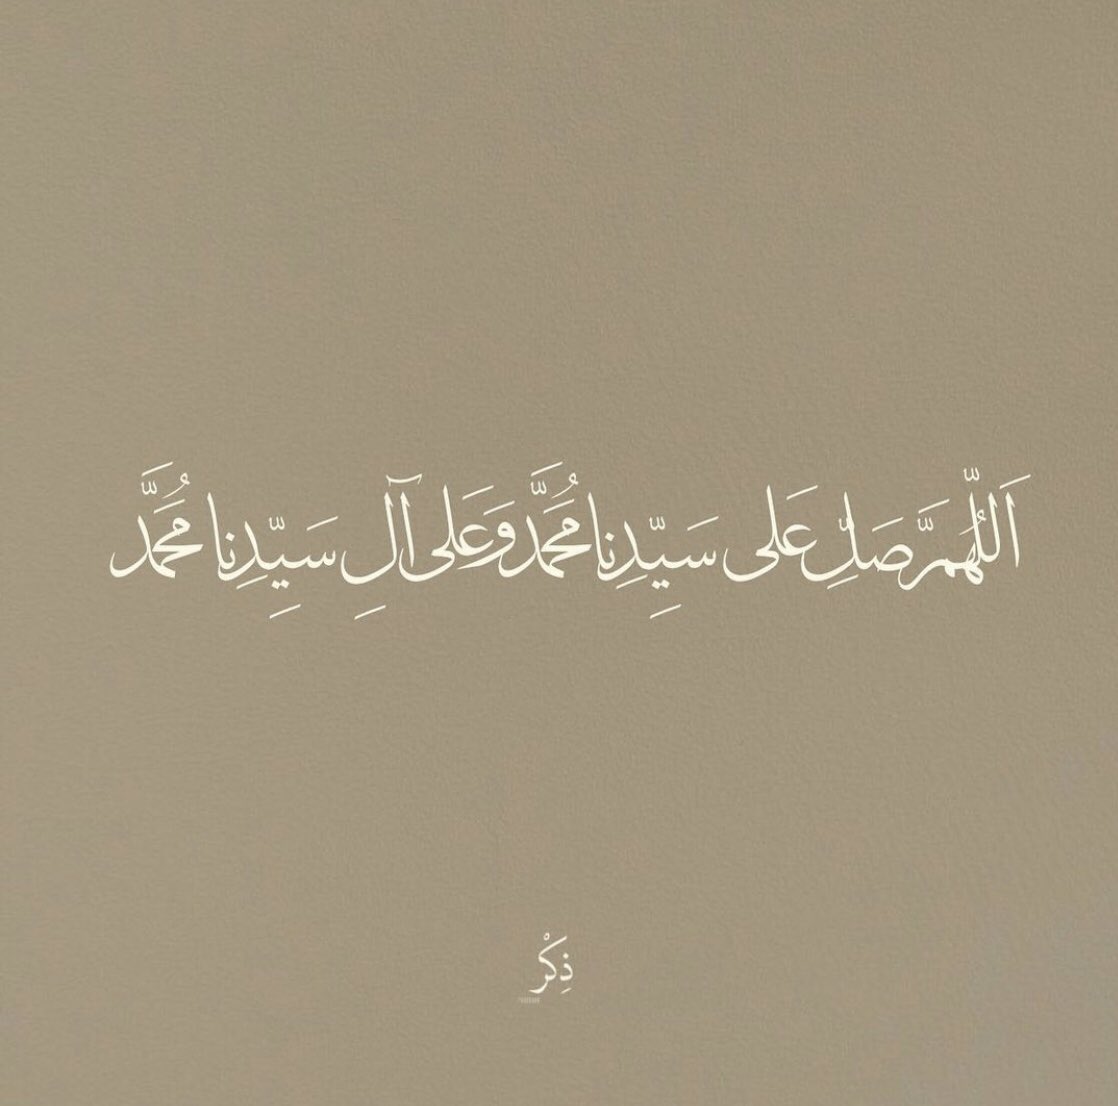 اَللّٰهُمَّ صَلِّ عَلى سَيِّدِنا مُحَمَّدٍ وَعَلى آلِ سَيِّدِنا مُحَمَّدٍ
ذِكْر